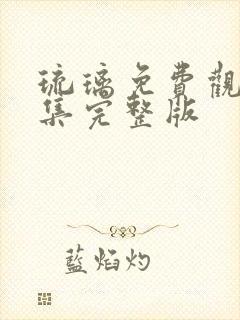 琉璃免費觀
集完整版
藍焰灼